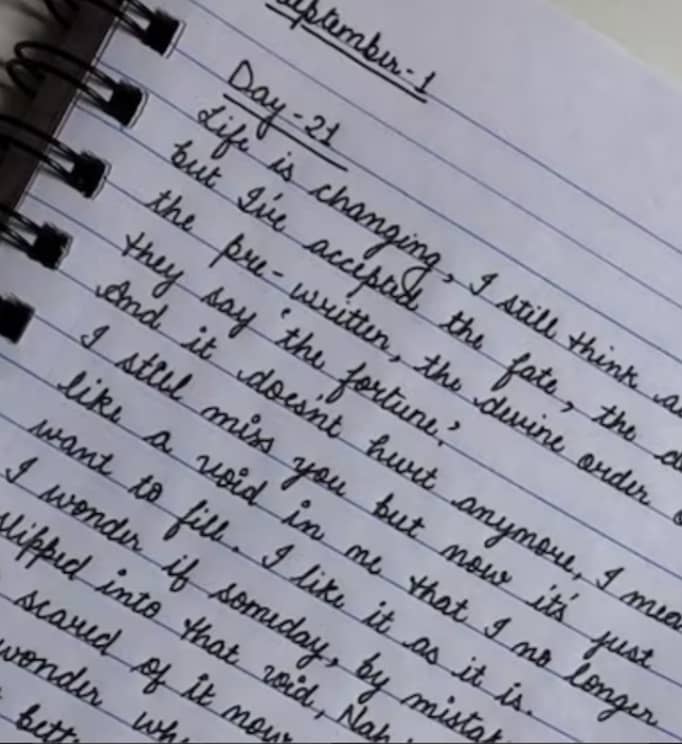 September-1
Day-21
Life is changing, I still think
but I've accepted the fate, the
the pre-written, the devine order
they say 'the fortune'.
And it doesn't hurt anymore, I
I still miss you but now it's just
like a void in me that I no longer
want to fill. I like it as it is.
I wonder if someday, by
slipped into that void, Nah
scared of it now
wonder